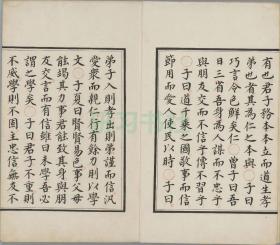 有也君子務本本立而道生孝
弟也者其為仁之本與○子曰
巧言令色鮮矣仁○曾子曰吾
日三省吾身為人謀而不忠乎
與朋友交而不信乎傳不習乎
○子曰道千乘之國敬事而信
節用而愛人使民以時○子曰
弟子入則孝出則弟謹而信汎
愛眾而親仁行有餘力則以學
文○子夏曰賢賢易色事父母
能竭其力事君能致其身與朋
友交言而有信雖曰未學吾必
謂之學矣○子曰君子不重則
不威學則不固主忠信無友不